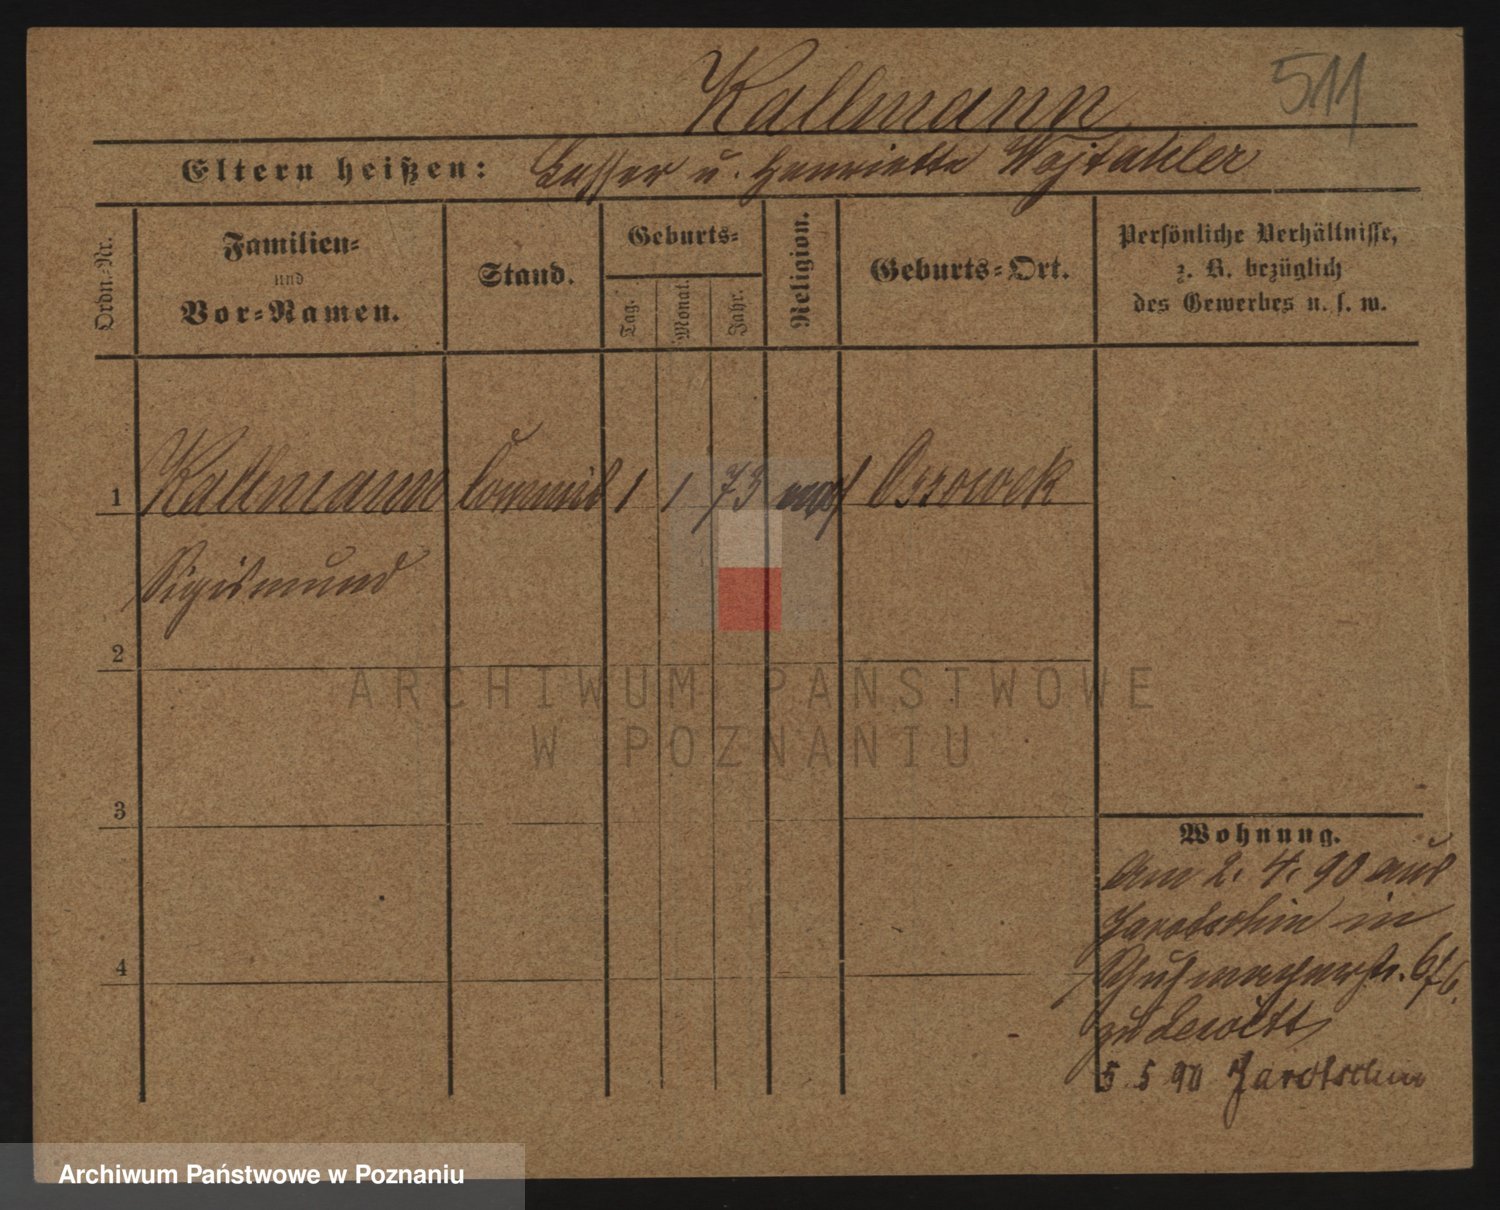 Kallmann
511
Eltern heißen: Lasser u. Henriette
Ordn.-Nr.
Familien-
und
Vor-Namen.
Stand.
Geburts-
Tag.
Monat.
Jahr.
Religion.
Geburts-Ort.
Persönliche Verhältnisse,
z. B. bezüglich
des Gewerbes u. s. w.
1 Kallmann Commis 1 1 73 mos
Sigismund
2
3
4
Wohnung.
Am 2. 4. 90 aus
Jarotschin in
Schuhmacherstr. 6
zu Lewitt
5. 5 90 Jarotschin
ARCHIWUM PAŃSTWOWE
W POZNANIU
Archiwum Państwowe w Poznaniu